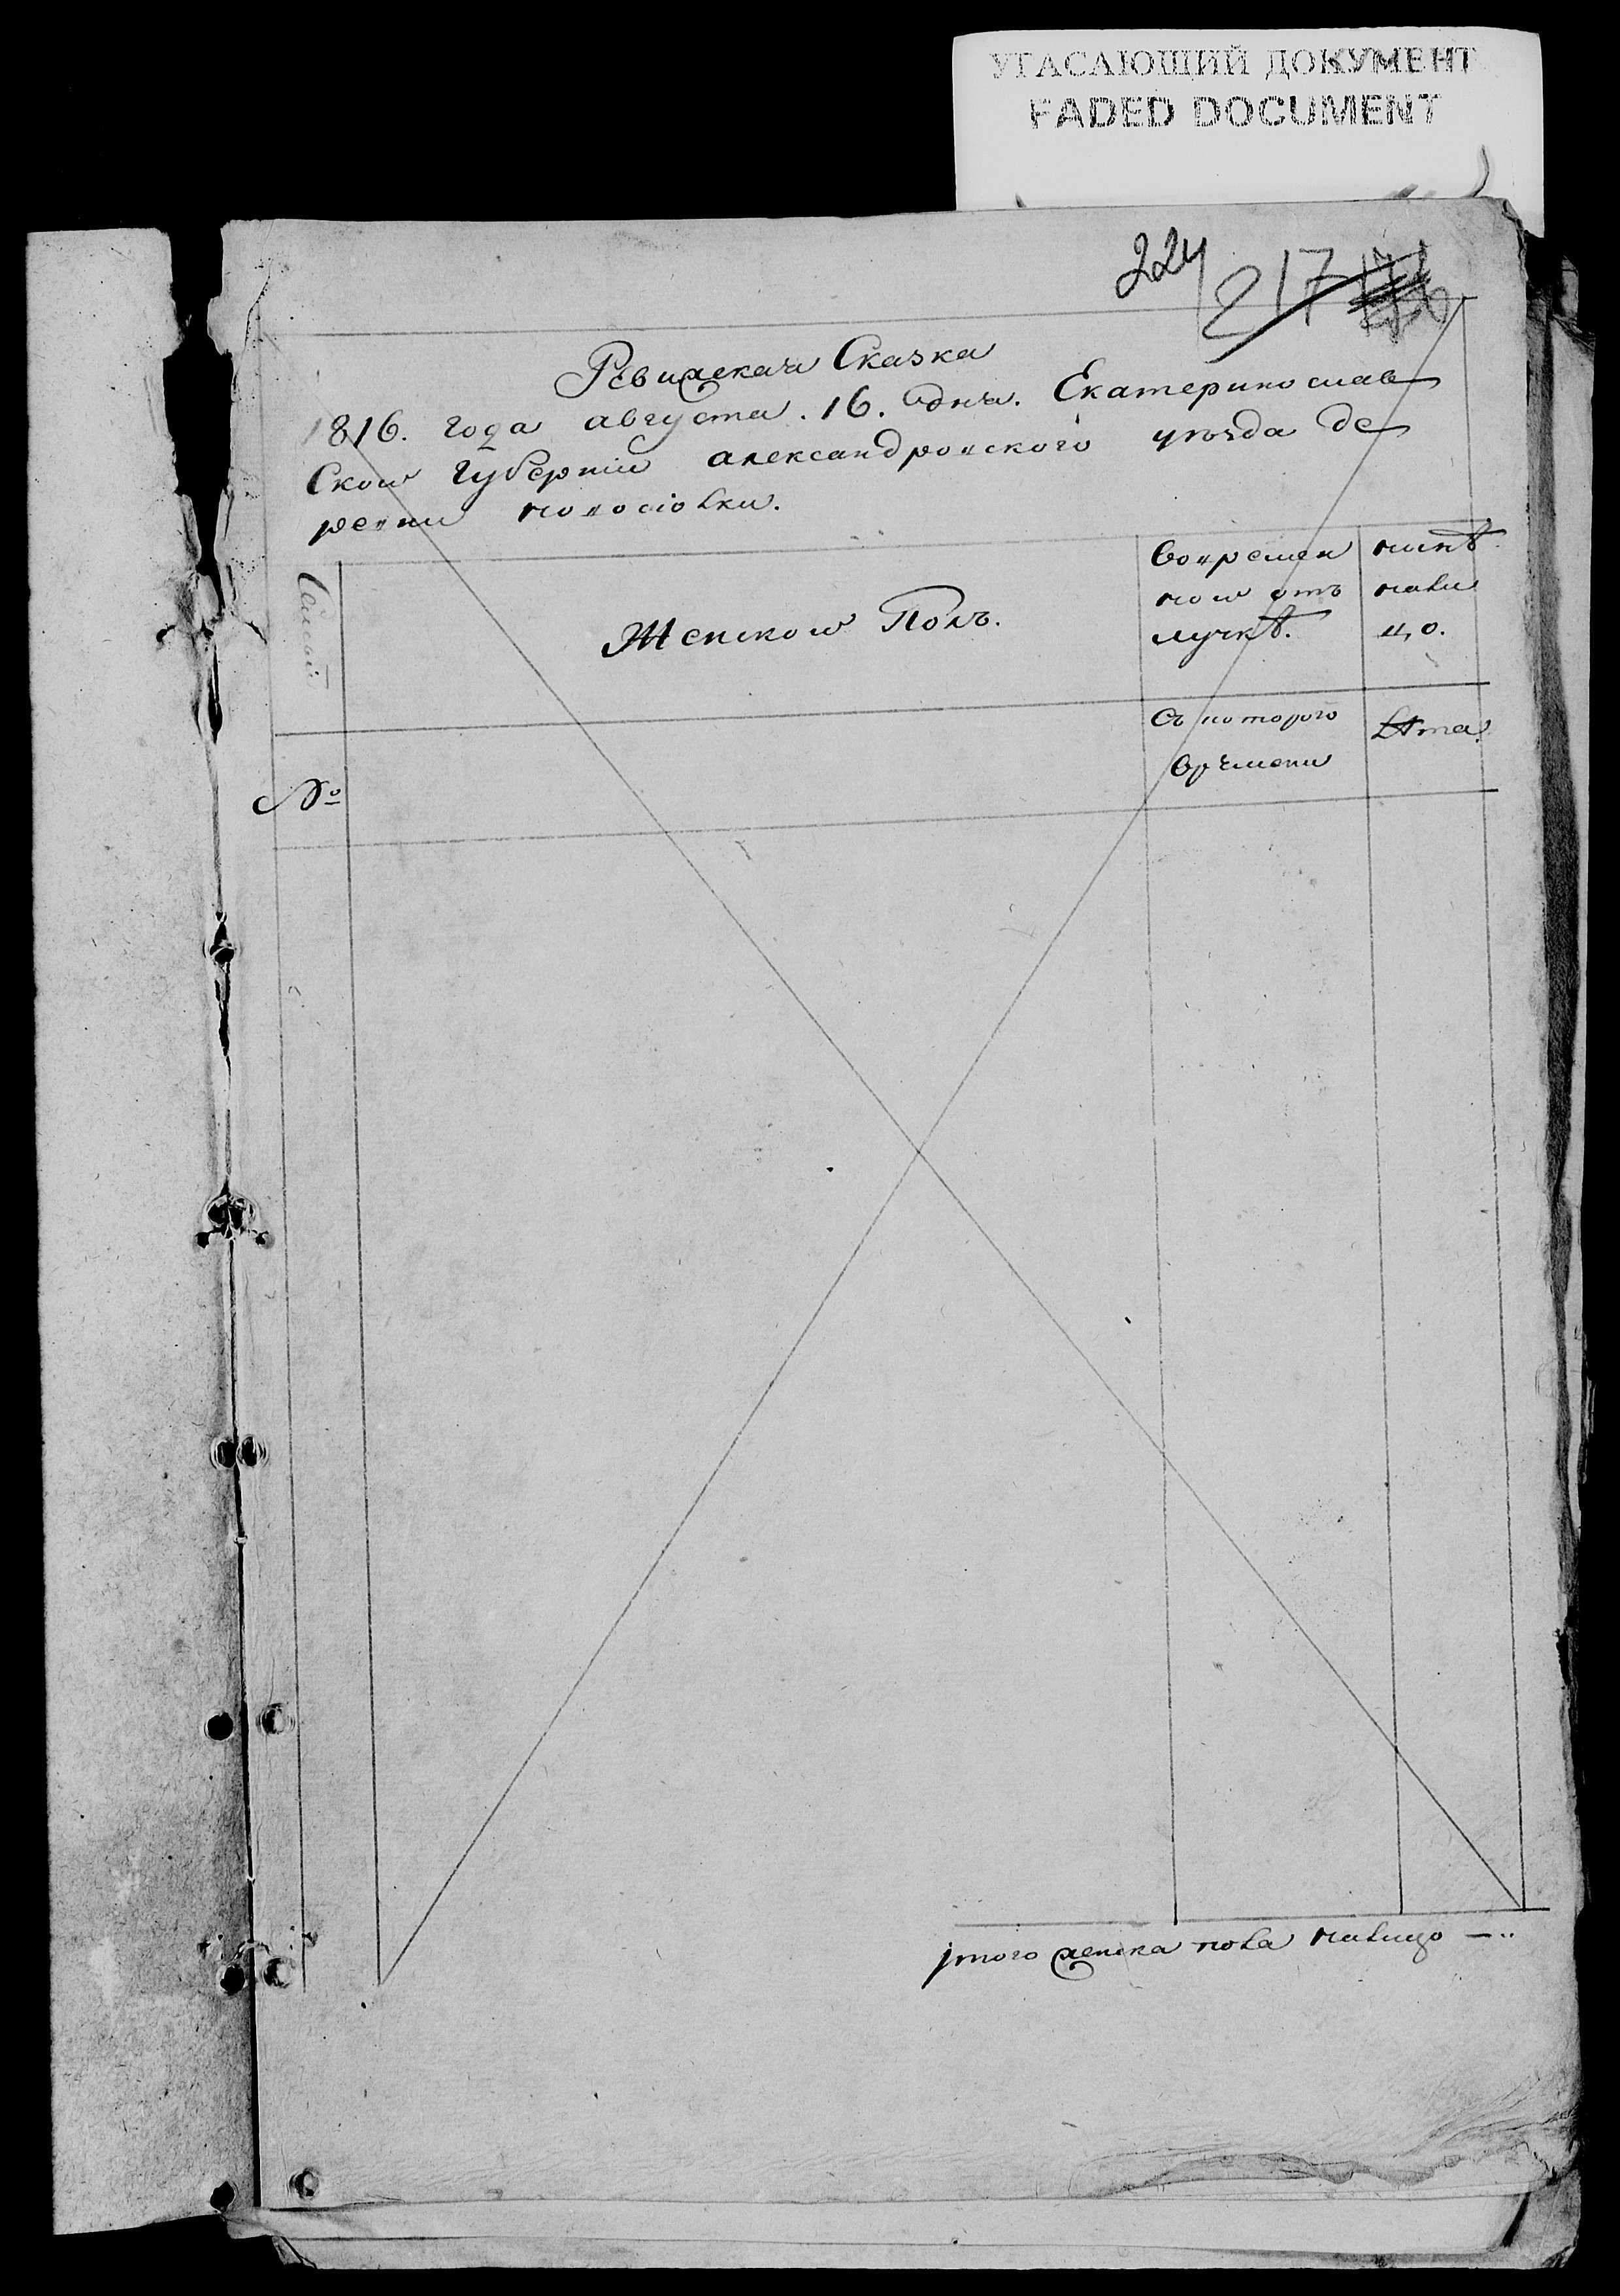 УГАСАЮЩИЙ ДОКУМЕНТ
FADED DOCUMENT
224 217
Ревижская Сказка
1816. года августа. 16. дня. Екатеринослав
Ской губернии александровского уѣзда де
ревни новосіолки.
Женской Полъ.
Вовремен
ной отъ
лучкѣ.
нинѣ
нали
цо.
Съ которого
времени
Лѣта
№
итого женска пола налицо —